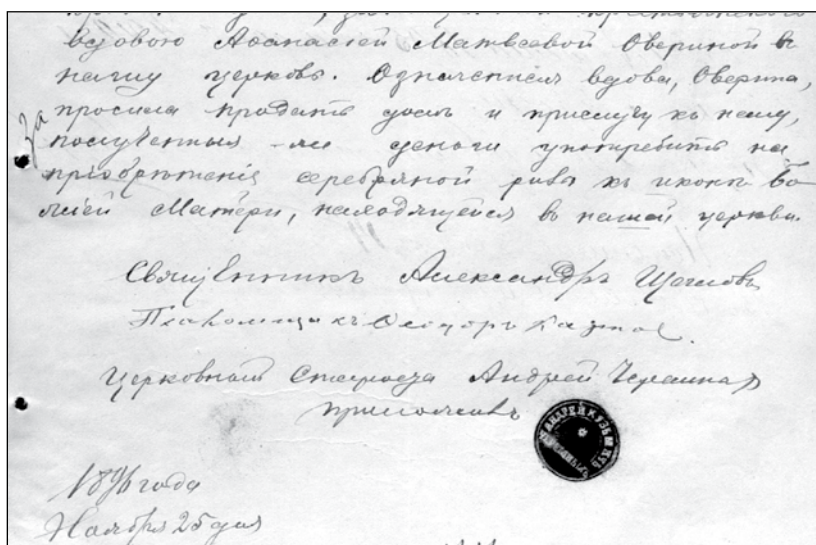 вдовою Аѳанасіей Матвеевой Овериной въ
нашу церковь. Означенная вдова, Оверина,
просила продать домъ и прислугу къ нему,
полученныя деньги употребить на
пріобрѣтеніе серебряной ризы къ иконѣ Бо-
жіей Матери, находящейся въ нашей церкви.
За
Священникъ Александръ
Псаломщикъ Ѳеодоръ
Церковный Староста Андрей
приложивъ
АНДРЕЙ КУЗЬМИЧЪ
года
Ноября 25 дня